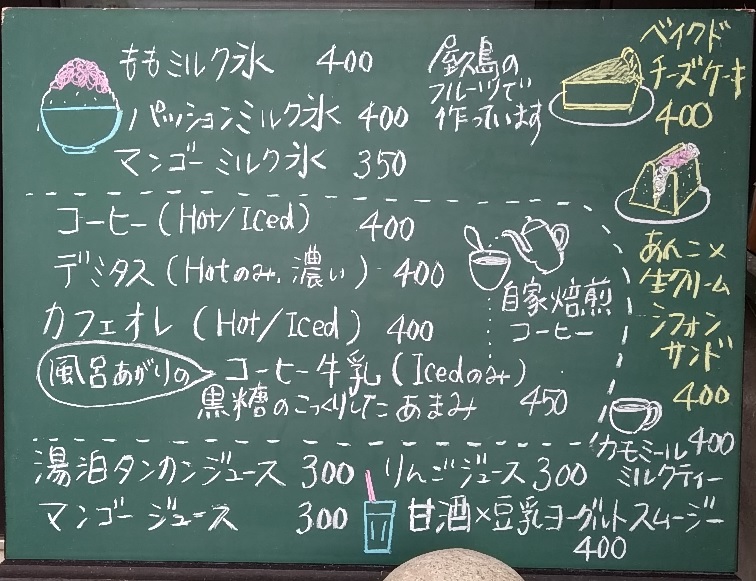 ももミルク氷 400
パッションミルク氷 400
マンゴーミルク氷 350
屋久島の
フルーツで
作っています
ベイクド
チーズケーキ
400
あんこ×
生クリーム
シフォン
サンド
400
コーヒー(Hot/Iced) 400
デミタス(Hotのみ、濃い) 400
カフェオレ(Hot/Iced) 400
自家焙煎
コーヒー
風呂あがりの コーヒー牛乳(Icedのみ)
黒糖のこっくりしたあまみ 450
カモミール 400
ミルクティー
湯泊タンカンジュース 300 りんごジュース 300
マンゴージュース 300 甘酒×豆乳ヨーグルトスムージー
400